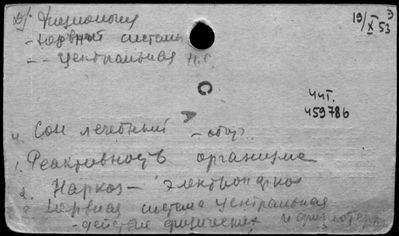 Физиология
- нервной системы
- - центральная н.с.
19/X 53
С
А
Чит.
459786
4. Сон лечебный - обор.
1. Реактивность организма
2. Наркоз - электронаркоз
3. Нервная система центральная
- действие физических